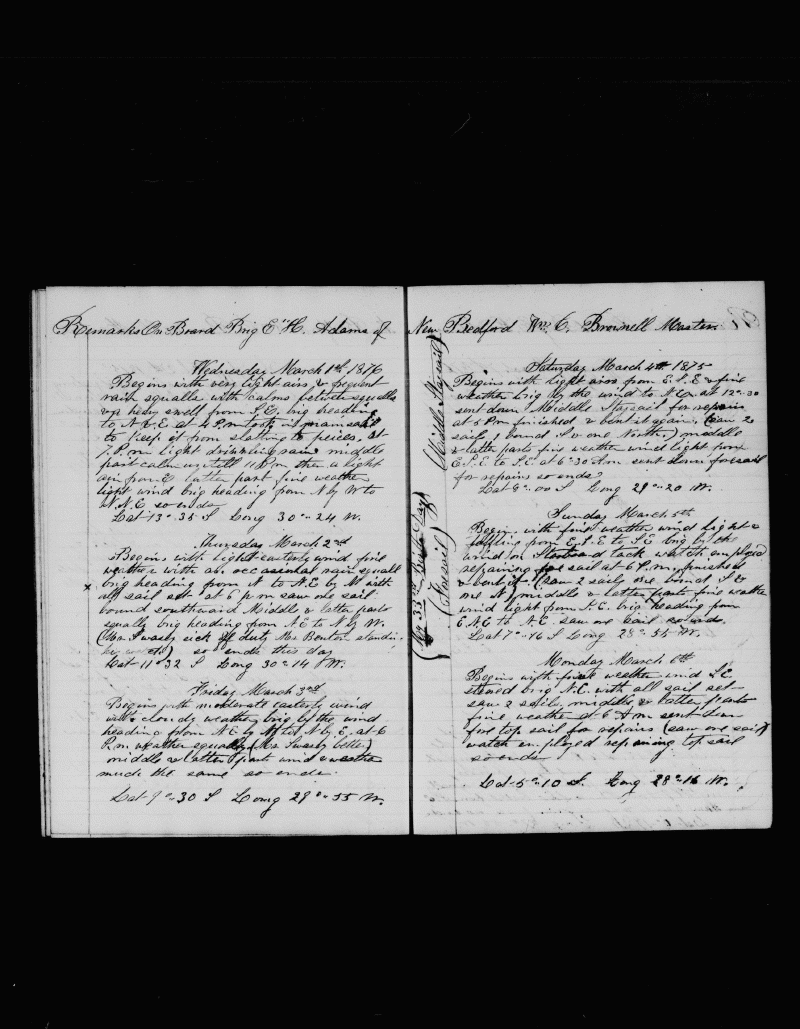 Remarks On Board Brig E. H. Adams of New Bedford Wm. C. Brownell Master
Wednesday March 1st, 1876
Begins with very light airs & frequent
rain squalls with calms between squalls
& a heavy swell from S.E. brig heading
to N & E at 4 P.m took in mainsail
to keep it from slatting to peices, at
7 P.m light drizzling rain middle
part calm untill 11 P.m then a light
air from E latter part fine weather
light wind brig heading from N by W to
N.N.E so ends
Lat 13°-35 S Long 30°-24 W.
Thursday March 2nd
Begins with light easterly wind fine
weather with an occasional rain squall
x brig heading from N to N.E by N with
all sail set at 6 p m saw one sail
bound southward Middle & latter parts
squally brig heading from N E to N by W.
(Mr. Swasey sick off duty Mr Benton standi-
his watch) so ends this day
Lat 11°-32 S Long 30°-14 W.
Friday March 3rd
Begins with moderate easterly wind
with cloudy weather brig by the wind
heading from N.E by N to N by E, at 6
P.m. weather squally (Mr. Swasey better)
middle & latter part wind & weather
much the same so ends.
Lat 9°-30 S Long 29°-55 W.
(Middle Staysail)
(Foresail)
Saturday March 4th 1875
Begins with light airs from E.S.E & fine
weather brig by the wind to N E at 12-30
sent down Middle Staysail for repairs
at 5 Pm finished & bent it again, (saw 2
sails, 1 bound S & one North,) middle
& latter parts fine weather wind light from
E.S.E. to S.E. at 6-30 A.m sent down foresail
for repairs so ends
Lat 8°-00 S Long 29°-20 W.
Sunday March 5th
Begins with fine weather wind light &
baffling from E.S.E to S.E brig by the
wind on Starboard tack watch employed
repairing fore sail at 6 P.m, finished
& bent it. (saw 2 sails one bound S &
one N) middle & latter parts fine weather
wind light from S.E. brig heading from
E.N.E to N.E. saw one sail so ends.
Lat 7°-16 S Long 28°-55 W.
Monday March 6th
Begins with fine weather wind S.E
steered brig N.E. with all sail set
saw 2 sails, middle & latter parts
fine weather at 6 A m sent down
fore top sail for repairs (saw one sail)
watch employed repairing top sail
so ends
Lat 5°-10 S. Long 28°-16 W.